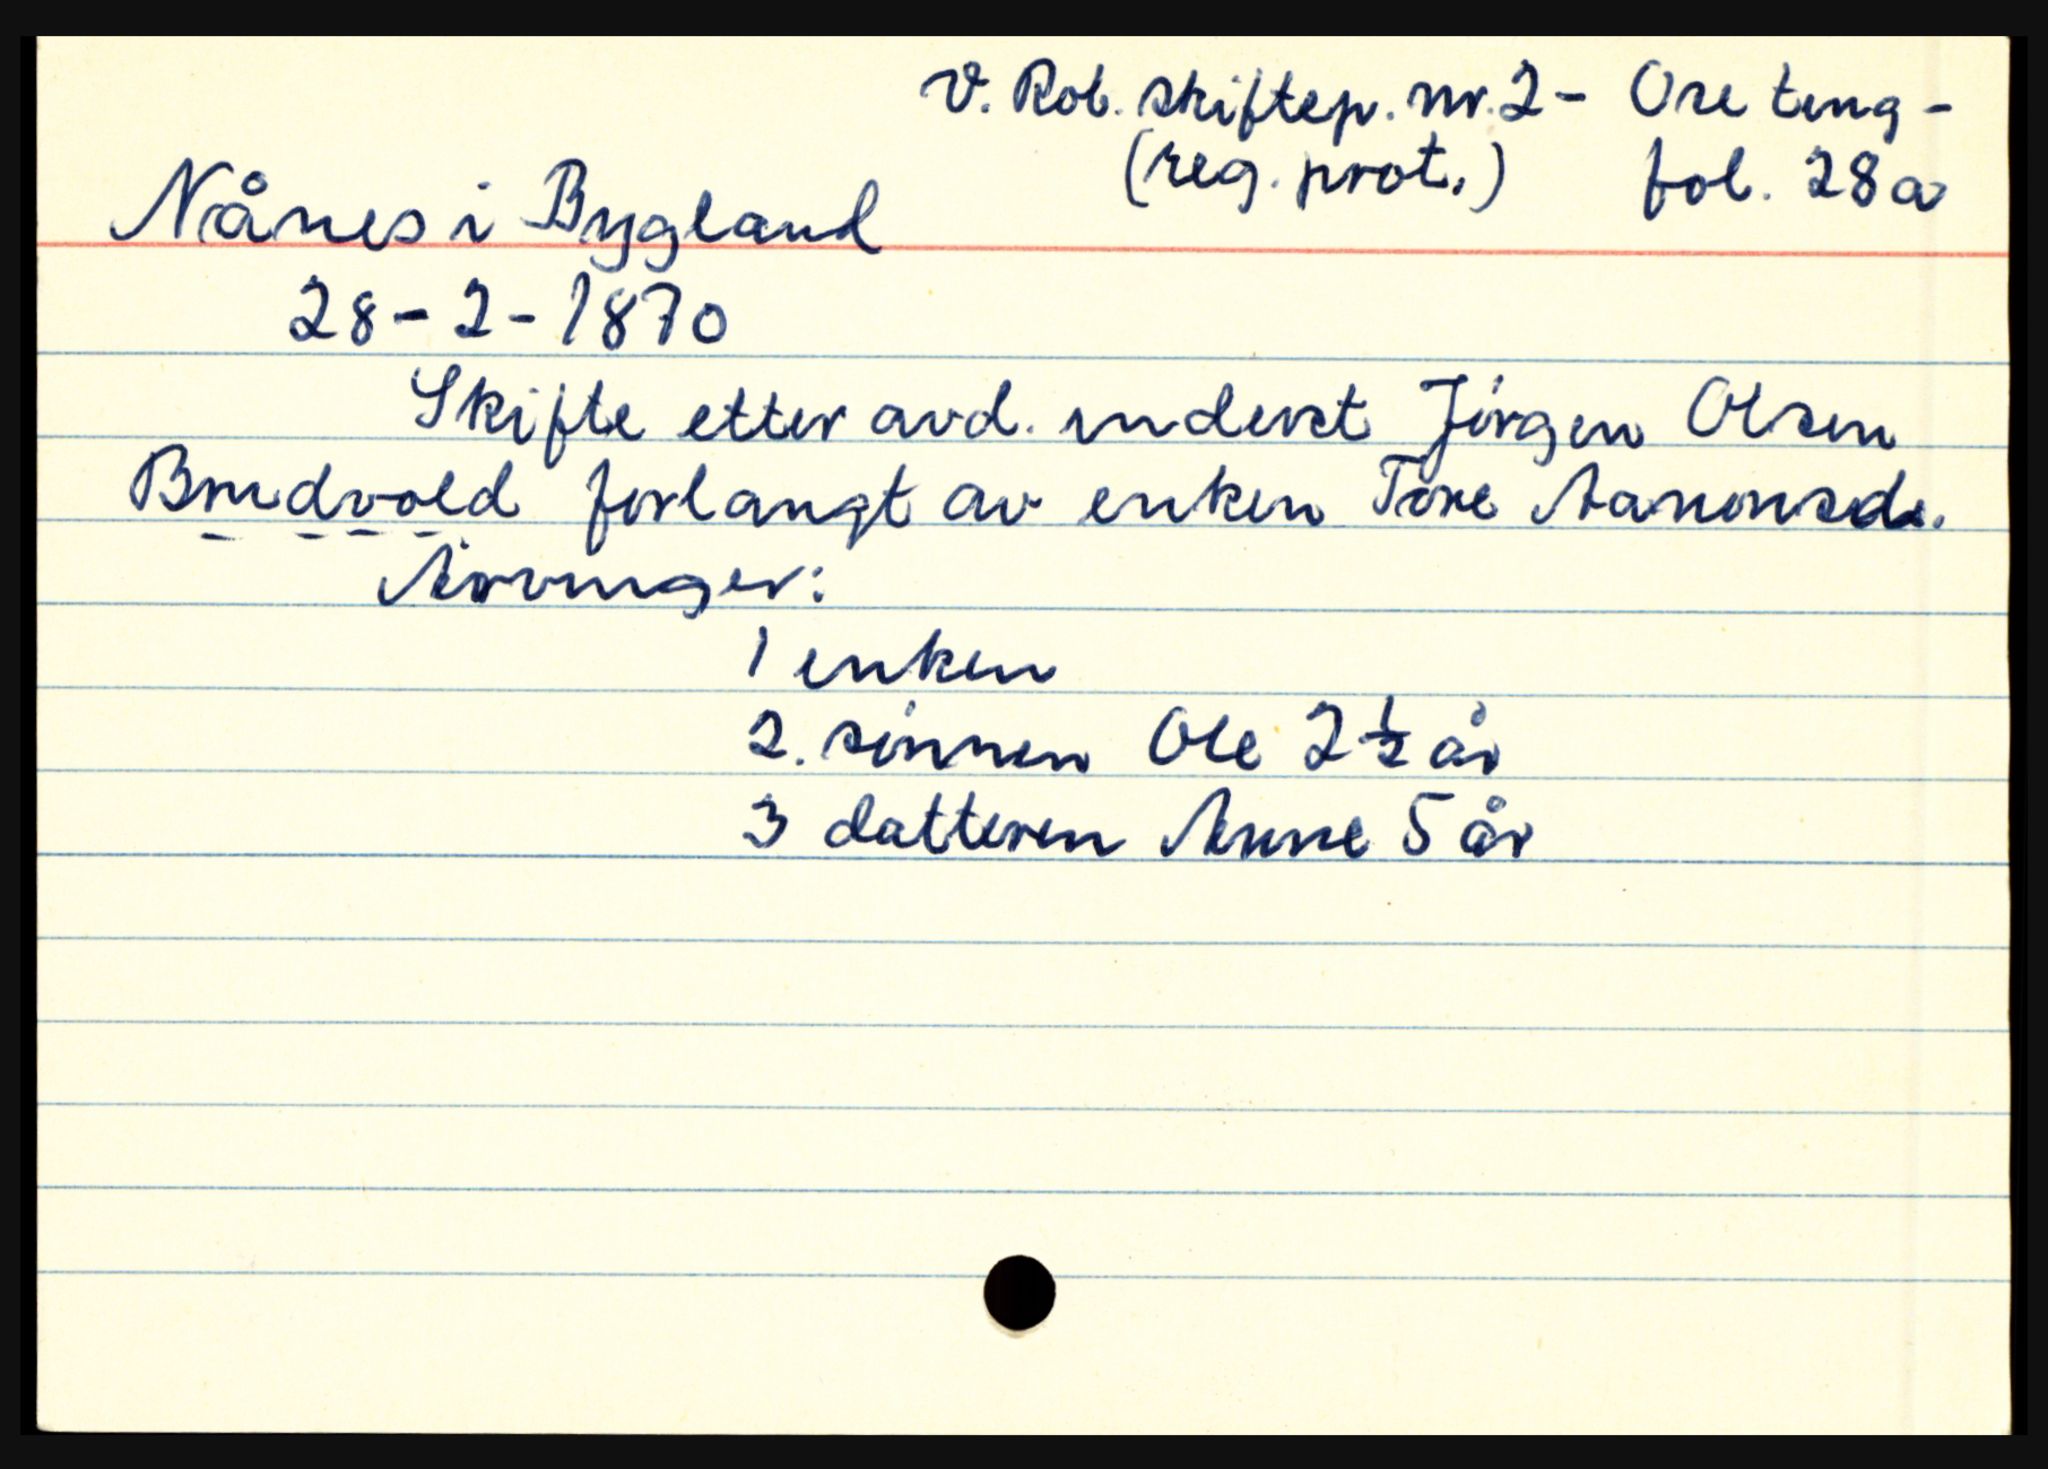 V. Rob. skiftep. nr. 2 - Ose ting -
(reg. prot.) fol. 28a
Nånes i Bygland
28 - 2 - 1870
Skifte etter avd. inderst Jörgen Olsen
Brudvold forlangt av enken Tore Aanonsdr.
Arvinger:
1 enken
2. sönnen Ole 2 ½ år
3 datteren Anne 5 år